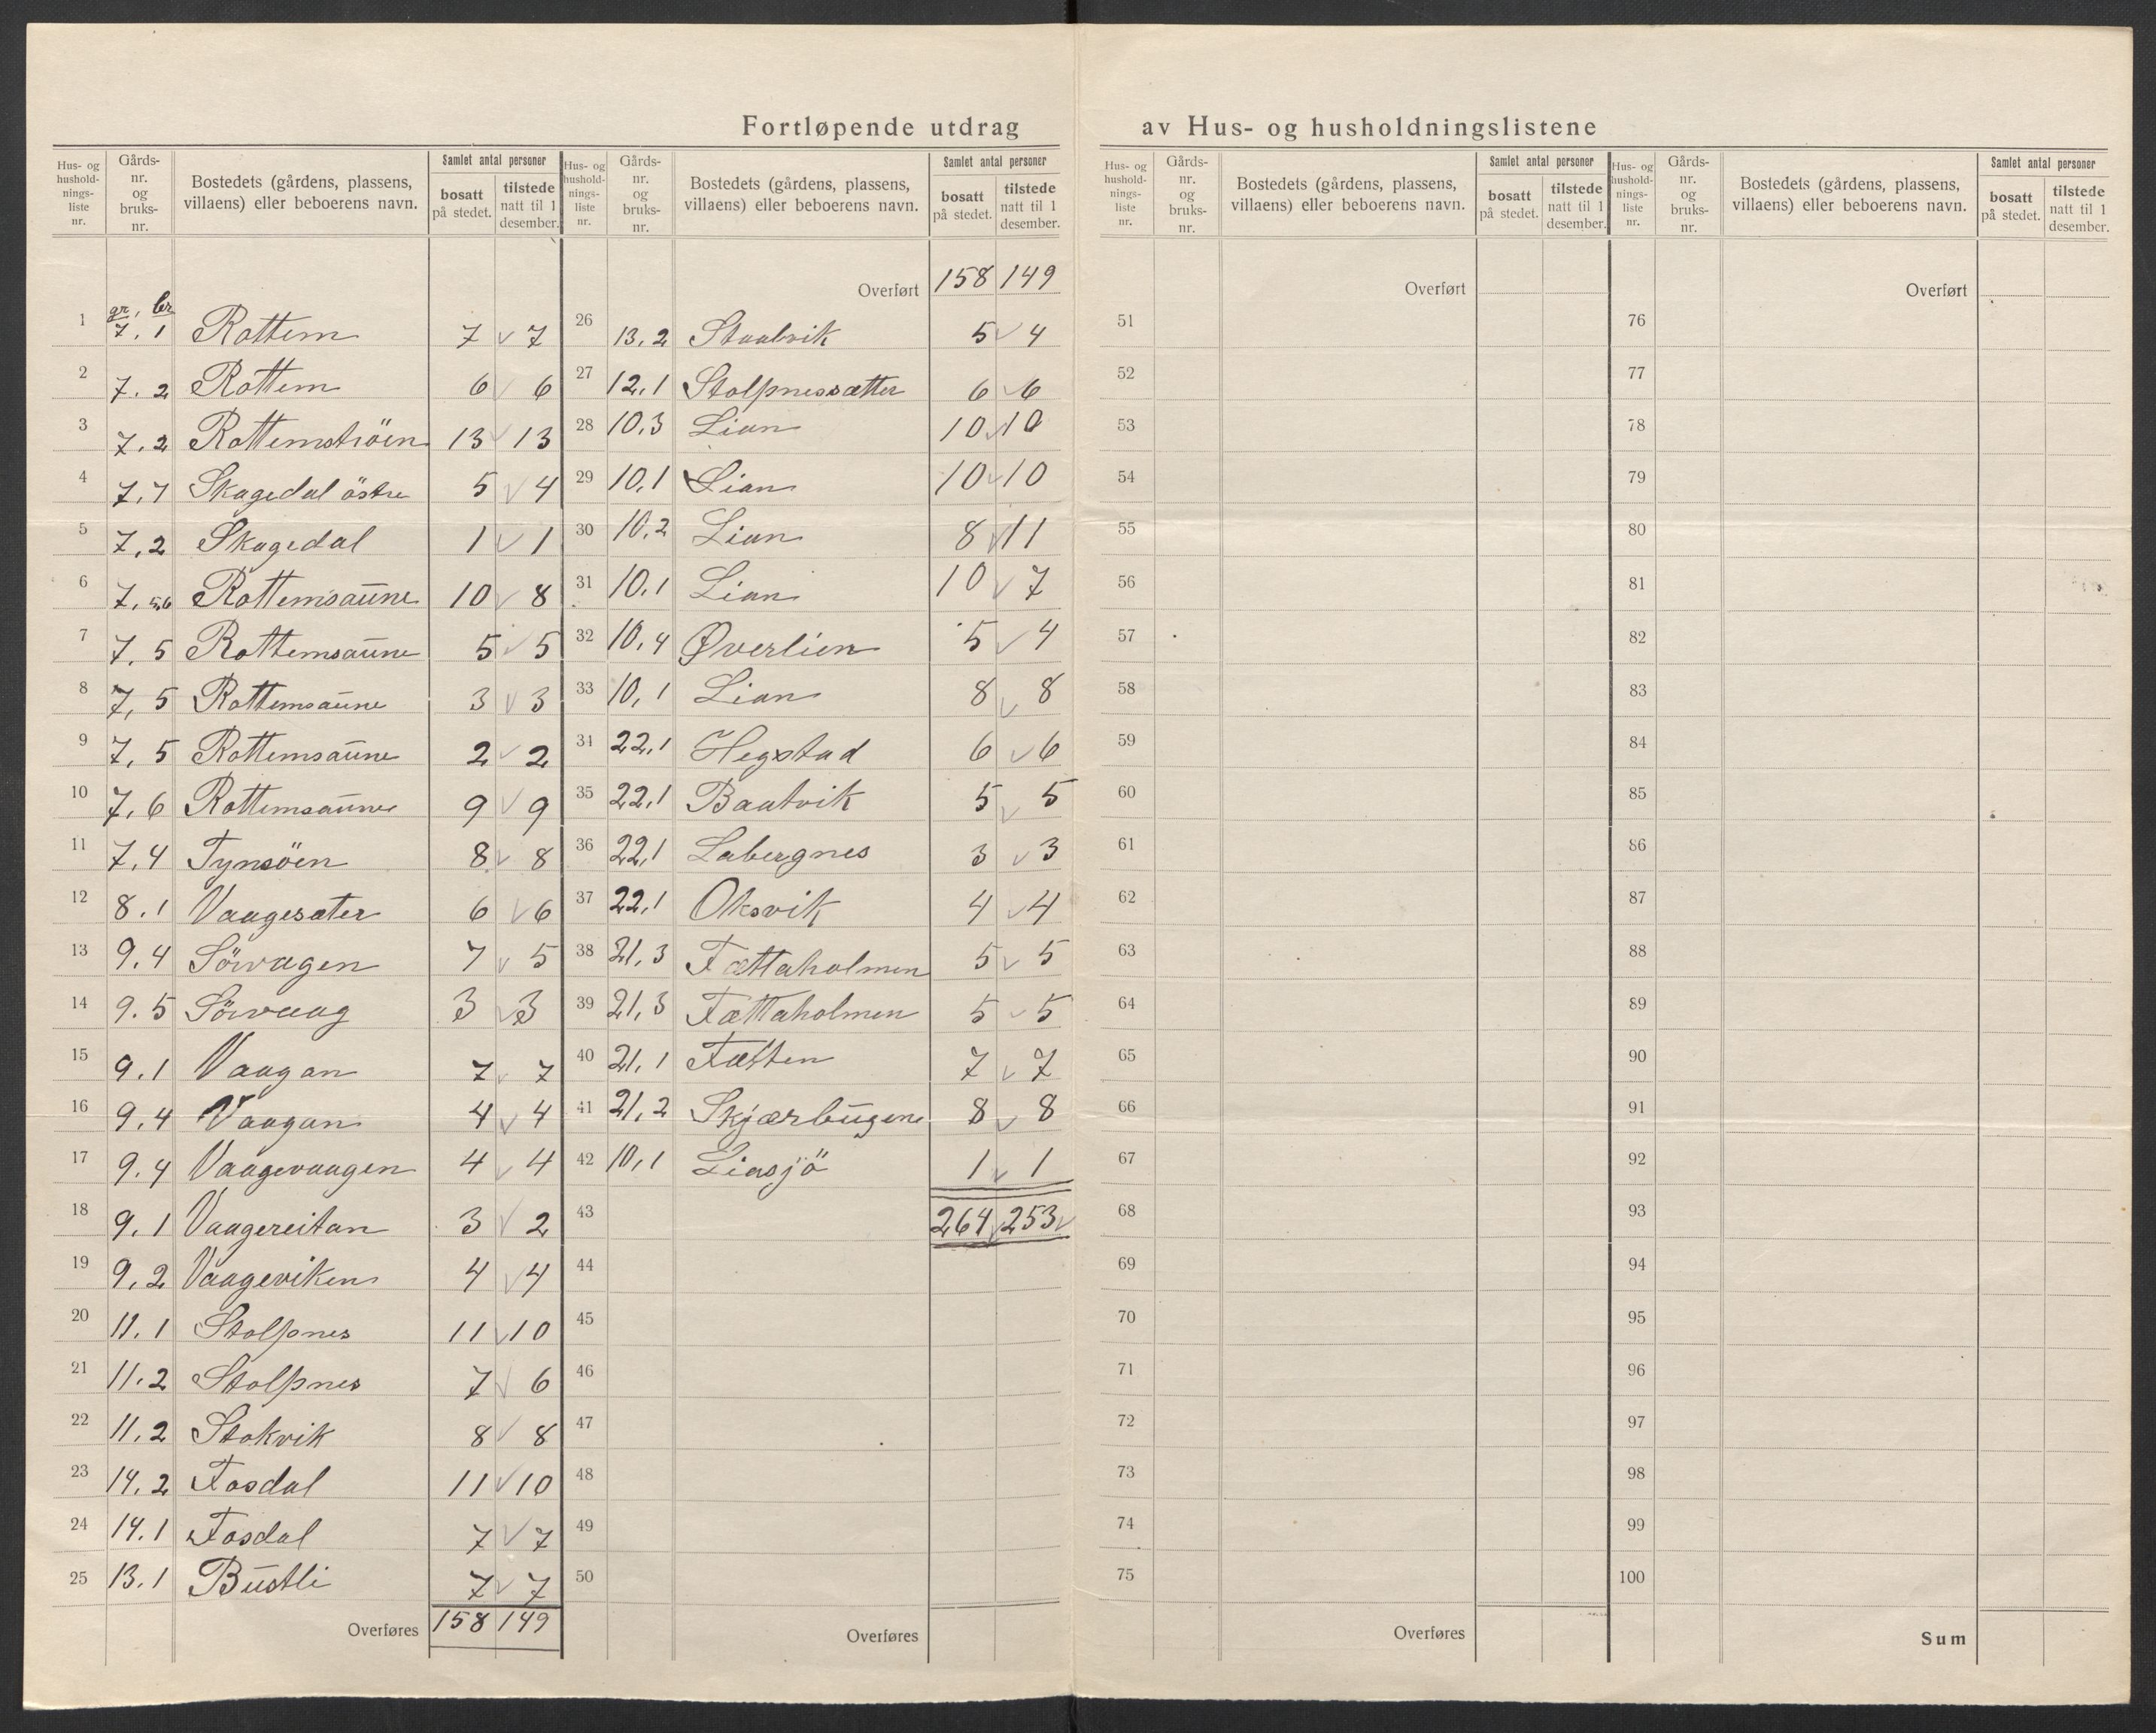 Fortløpende utdrag av Hus- og husholdningslistene
Hus- og husholdnings-liste nr. | Gårds-nr. og bruks-nr. | Bostedets (gårdens, plassens, villaens) eller beboerens navn. | Samlet antal personer | bosatt på stedet. | tilstede natt til 1 desember.
gr, br
1 7.1 Rottem 7 v 7
2 7.2 Rottem 6 v 6
3 7.2 Rottemströen 13 v 13
4 7.7 Skagedal östre 5 v 4
5 7.2 Skagedal 1 v 1
6 7.5,6 Rottemsaune 10 v 8
7 7.5 Rottemsaune 5 v 5
8 7,5 Rottemsaune 3 v 3
9 7,5 Rottemsaune 2 v 2
10 7.6 Rottemsaune 9 v 9
11 7.4 Tynsöen 8 v 8
12 8.1 Vaagesæter 6 v 6
13 9.4 Sörvagen 7 v 5
14 9.5 Sörvaag 3 v 3
15 9.1 Vaagan 7 v 7
16 9.4 Vaagan 4 v 4
17 9.4 Vaagevaagen 4 v 4
18 9.1 Vaagereitan 3 v 2
19 9.2 Vaageviken 4 v 4
20 11.1 Stolpnes 11 v 10
21 11.2 Stolpnes 7 v 6
22 11.2 Stokvik 8 v 8
23 14.2 Fosdal 11 v 10
24 14.1 Fosdal 7 v 7
25 13.1 Bustli 7 v 7
Overføres 158 149
Hus- og husholdnings-liste nr. | Gårds-nr. og bruks-nr. | Bostedets (gårdens, plassens, villaens) eller beboerens navn. | Samlet antal personer | bosatt på stedet. | tilstede natt til 1 desember.
Overført 158 149
26 13.2 Staulvik 5 v 4
27 12.1 Stolpnessætter 6 v 6
28 10.3 Lian 10 v 10
29 10.1 Lian 10 v 10
30 10.2 Lian 8 v 11
31 10.1 Lian 10 v 7
32 10.4 Øverlien 5 v 4
33 10,1 Lian 8 v 8
34 22,1 Hegstad 6 v 6
35 22,1 Bautvik 5 v 5
36 22,1 Labergnes 3 v 3
37 22,1 Oksvik 4 v 4
38 21,3 Fættaholmen 5 v 5
39 21,3 Fættaholmen 5 v 5
40 21,1 Fætten 7 v 7
41 21,2 Skjærbugene 8 v 8
42 10,1 Liasjö 1 v 1
43 264 v 253 v
44
45
46
47
48
49
50
Overføres
Hus- og husholdnings-liste nr. | Gårds-nr. og bruks-nr. | Bostedets (gårdens, plassens, villaens) eller beboerens navn. | Samlet antal personer | bosatt på stedet. | tilstede natt til 1 desember.
Overført
51
52
53
54
55
56
57
58
59
60
61
62
63
64
65
66
67
68
69
70
71
72
73
74
75
Overføres
Hus- og husholdnings-liste nr. | Gårds-nr. og bruks-nr. | Bostedets (gårdens, plassens, villaens) eller beboerens navn. | Samlet antal personer | bosatt på stedet. | tilstede natt til 1 desember.
Overført
76
77
78
79
80
81
82
83
84
85
86
87
88
89
90
91
92
93
94
95
96
97
98
99
100
Sum